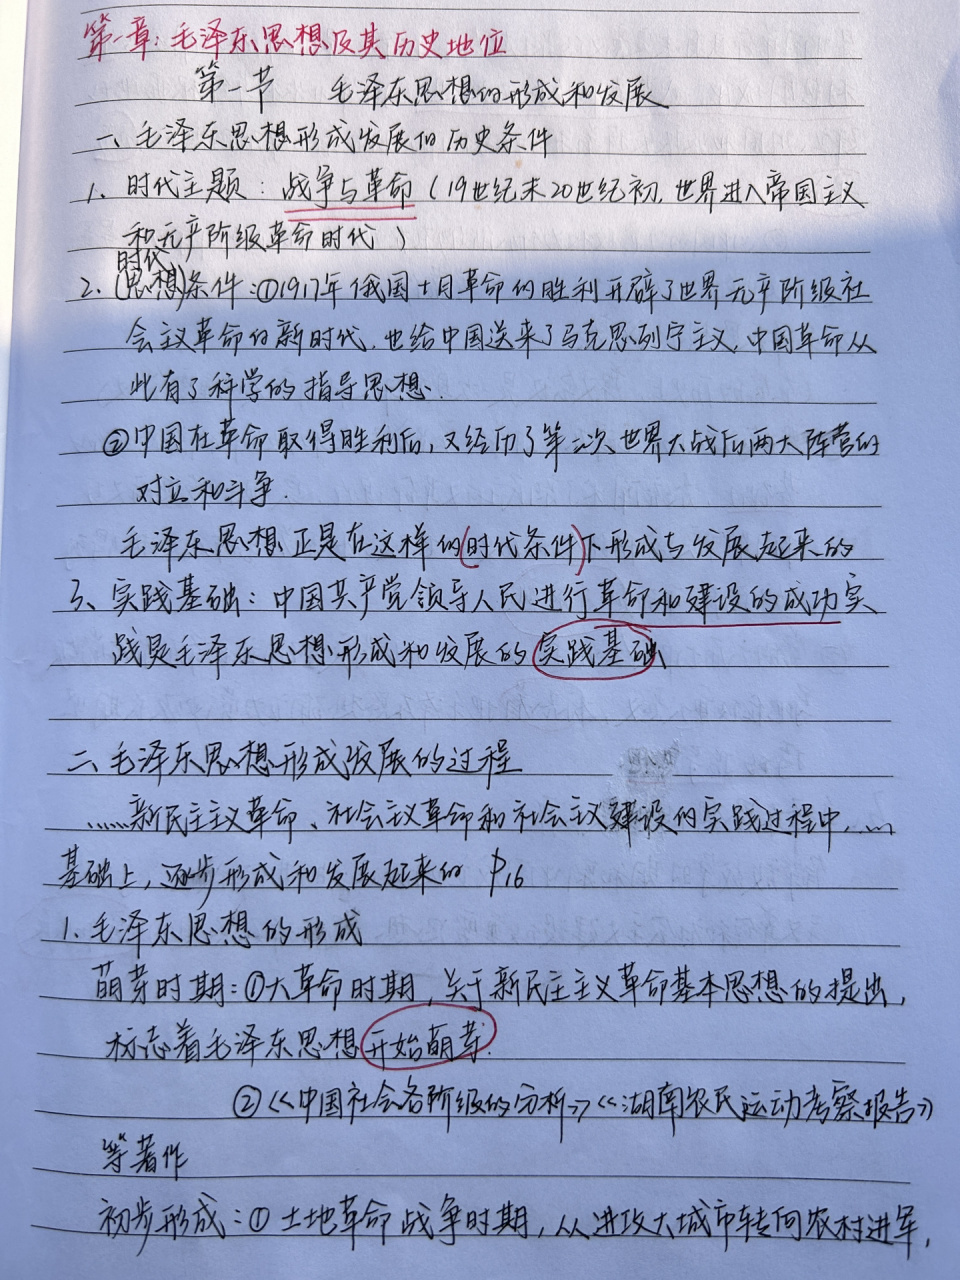 第一章：毛泽东思想及其历史地位
第一节 毛泽东思想的形成和发展
一、毛泽东思想形成发展的历史条件
1、时代主题：战争与革命（19世纪末20世纪初，世界进入帝国主义
和无产阶级革命时代）
时代
2、(思想)条件：①1917年俄国十月革命的胜利开辟了世界无产阶级社
会主义革命的新时代，也给中国送来了马克思列宁主义，中国革命从
此有了科学的指导思想.
②中国在革命取得胜利后，又经历了第二次世界大战后两大阵营的
对立和斗争.
毛泽东思想正是在这样的(时代条件)下形成与发展起来的
3、实践基础：中国共产党领导人民进行革命和建设的成功实
践是毛泽东思想形成和发展的实践基础
二、毛泽东思想形成发展的过程
......新民主主义革命、社会主义革命和社会主义建设的实践过程中......
基础上，逐步形成和发展起来的 P16
1.毛泽东思想的形成
萌芽时期：①大革命时期，关于新民主主义革命基本思想的提出，
标志着毛泽东思想开始萌芽.
②《中国社会各阶级的分析》《湖南农民运动考察报告》
等著作
初步形成：①土地革命战争时期，从进攻大城市转向农村进军，